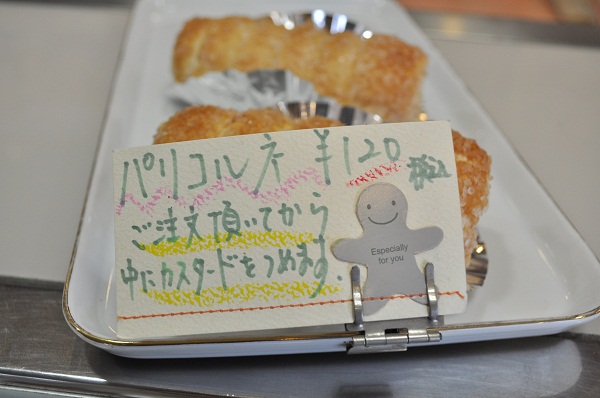 パリコルネ ¥120 税込
ご注文頂いてから
中にカスタードをつめます。
Especially
for you